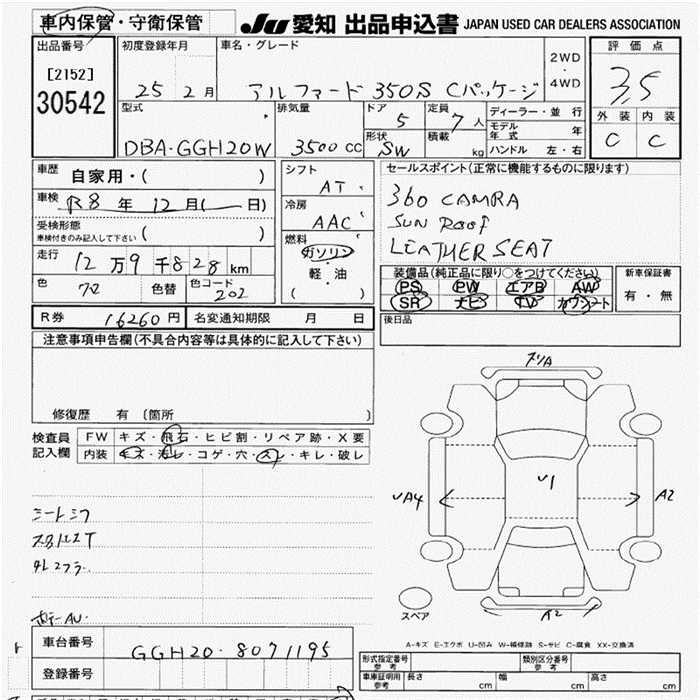 車内保管・守衛保管 JU 愛知 出品申込書 JAPAN USED CAR DEALERS ASSOCIATION
出品番号 [2152] 30542
初度登録年月 25 2月
車名・グレード アルファード 350S Cパッケージ
2WD・4WD
評価点 3.5
外装 内装
C C
型式 DBA-GGH20W
排気量 3500 CC
ドア 5
定員 7人
形状 SW
積載 kg
ディーラー・並行
モデル年式 年
ハンドル 左・右
車歴 自家用・( )
車検 R8年 12月( 日)
受検形態 車検付きのみ記入して下さい ( )
走行 12万9千828km
色 72 色替 色コード 202
シフト AT
冷房 AAC
燃料 ガソリン
軽・油
( )
セールスポイント(正常に機能するものに限ります)
360 CAMRA
SUN ROOF
LEATHER SEAT
装備品(純正品に限り○をつけてください)
PS PW エアB AW
SR ナビ TV カワシート
新車保証書
有・無
後日品
R券 16260円 名変通知期限 月 日
注意事項申告欄(不具合内容等は具体的に記入して下さい)
修復歴 有 〔箇所 〕
検査員記入欄
FW キズ・飛石・ヒビ割・リペア跡・X要
内装 キズ・汚レ・コゲ・穴・スレ・キレ・破レ
シートシワ
車台番号 GGH20-8071195
登録番号
スリA
U1
UA4
A2
A2
スペア
A-キズ E-エクボ U-凹み W-補修跡 S-サビ C-腐食 XX-交換済
形式指定番号 参考
類別区分番号 参考
車庫証明用 参考 長さ cm 幅 cm 高さ cm